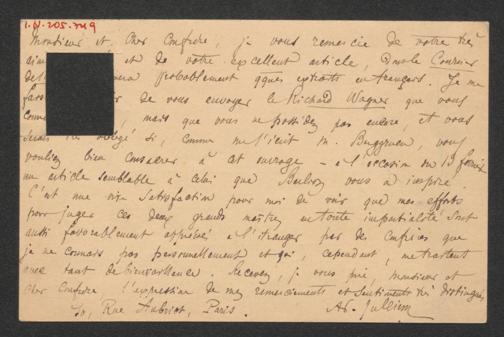 Monsieur et Cher Confrère, je vous remercie de votre très
aim et de votre excellent article, dans le Courrier
del probablement qques extraits en français. Je me
fer de vous envoyer le Richard Wagner que vous
conn , mais que vous ne possédez pas encore, et vous
serais obligé si, comme me l'écrit M. Buggruen, vous
vouliez bien consacrer à cet ouvrage - à l'occasion du 13 février
un article semblable à celui que Berlioz vous a inspiré.
C'est une vive satisfaction pour moi de voir que mes efforts
pour juger ces deux grands maîtres en toute impartialité sont
aussi favorablement appréciés à l'étranger par des Confrères que
je ne connais pas personnellement et qui, cependant, me traitent
avec tant de bienveillance. Recevez, je vous prie, monsieur et
cher Confrère l'expression de mes remerciements et sentiments très distingués,
Rue , Paris. Ad. Jullien